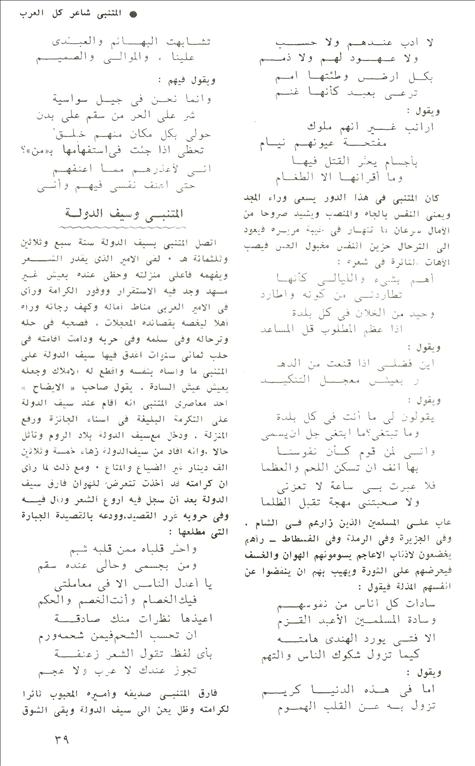 ● المتنبي شاعر كل العرب
لا ادب عندهم ولا حسب
ولا عهود لهم ولا ذمم
بكل ارض وطئتها امم
ترعى بعبد كأنها غنم
ويقول :
ارانب غير انهم ملوك
مفتحة عيونهم نيام
بأجسام يحر القتل فيها
وما أقرانها الا الطعام
كان المتنبي في هذا الدور يسعى وراء المجد
ويعني النفس بالجاه والمنصب ويشيد صروحا من
الآمال سرعان ما تنهار في خيبة مريرة فيعود
الى الترحال حزين النفس مغبول الحس فيصب
الآهات الثائرة في شعره :
أهم بشيء والليالي كأنها
تطاردني عن كونه واطارد
وحيد من الخلان في كل بلدة
اذا عظم المطلوب قل المساعد
ويقول :
اين فضلي اذا قنعت من الدهـ
ـر بعيش معجل التنكيد
ويقول :
يقولون لي ما أنت في كل بلدة
وما تبتغي؟ ما ابتغي جل ان يسمى
واني لمن قوم كأن نفوسنا
بها انف ان تسكن اللحم والعظما
فلا عبرت بي ساعة لا تعزني
ولا صحبتني مهجة تقبل الظلما
عاب على المسلمين الذين زارهم في الشام ،
وفي الجزيرة وفي الرملة وفي الفسطاط ـ رآهم
يخضعون لاذناب الاعاجم يسومونهم الهوان والخسف
فيعرضهم على الثورة ويهيب بهم ان ينفضوا عن
انفسهم المذلة فيقول :
سادات كل اناس من نفوسهم
وسادة المسلمين الأعبد القزم
الا فتى يورد الهندي هامته
كيما تزول شكوك الناس والتهم
ويقول :
اما في هذه الدنيا كريم
تزول به عن القلب الهموم
تشابهت البهائم والعبدى
علينا ، والموالي والصميم
ويقول فيهم :
وانما نحن في جيل سواسية
شر على الحر من سقم على بدن
حولي بكل مكان منهم خلق
تخطى اذا جئت في استفهامها بـ«من»؟
اني لأعذرهم مما اعنفهم
حتى اعنف نفسي فيهم وأني
المتنبي وسيف الدولة
اتصل المتنبي بسيف الدولة سنة سبع وثلاثين
وثلثمائة هـ ٠ لقي الامير الذي يقدر الشعر
ويفهمه فاعلى منزلته وحظي عنده بعيش غير
مسهد وجد فيه الاستقرار ووفور الكرامة ورأى
في الامير العربي مناط آماله وكهف رجائه ورآه
أهلا ليخصه بقصائده المعجلات ، فصحبه في حله
وترحاله وفي سلمه وفي حربه ودامت اقامته في
حلب ثماني سنوات اغدق فيها سيف الدولة على
المتنبي ما واساه بنفسه واقطع له الاملاك وجعله
يعيش عيش السادة ، يقول صاحب « الايضاح »
احد معاصري المتنبي انه اقام عند سيف الدولة
على التكرمة البليغة في اسناء الجائزة ورفع
المنزلة ، ودخل مع سيف الدولة بلاد الروم وتأثل
حالا ،وانه افاد من سيف الدولة زهاء خمسة وثلاثين
الف دينار غير الضياع والمتاع ٠ ومع ذلك لما رأى
ان كرامته قد أخذت تتعرض للهوان فارق سيف
الدولة بعد أن سجل فيه اروع الشعر وقال فيه
وفي حروبه غرر القصيد،وودعه بالقصيدة الجبارة
التي مطلعها :
واحر قلباه ممن قلبه شبم
ومن بجسمي وحالي عنده سقم
يا اعدل الناس الا في معاملتي
فيك الخصام وأنت الخصم والحكم
اعيذها نظرات منك صادقة
ان تحسب الشحم فيمن شحمه ورم
بأي لفظ تقول الشعر زعنفة
تجوز عندك لا عرب ولا عجم
فارق المتنبي صديقه وأميره المحبوب ثائرا
لكرامته وظل يحن الى سيف الدولة وبقي الشوق
٣٩